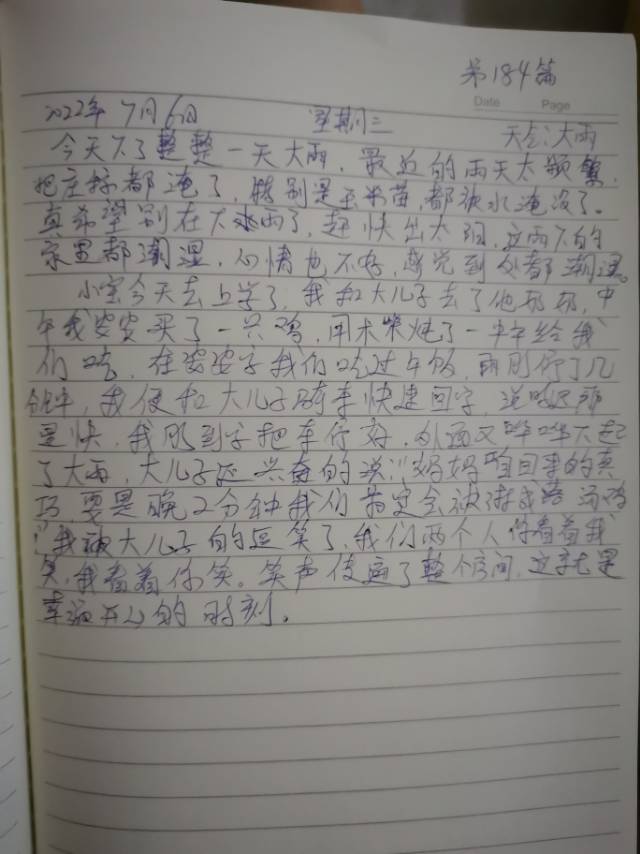 第184篇
Date Page
2022年 7月6日 星期三
天气:大雨
今天下了整整一天大雨,最近的雨天太频繁,
把庄稼都淹了,特别是玉米苗,都被水淹没了。
真希望别在下水雨了,赶快出太阳,这雨下的
家里都潮湿,心情也不好,感觉到处都潮湿。
小宝今天去上学了,我和大儿子去了他奶奶,中
午我婆婆买了一只鸡,用木柴炖了一中午给我
们吃,在婆婆家我们吃过午饭,雨刚停了几
分钟,我便和大儿子骑车快速回家,说时迟那
是快,我刚到家把车停好,外面又哗哗下起
了大雨,大儿子还兴奋的说!!妈妈咱回来的真
巧,要是晚2分钟我们肯定会被淋成落汤鸡
!我被大儿子的逗笑了,我们两个人你看着我
笑,我看着你笑。笑声传遍了整个房间,这就是
幸福开心的时刻。